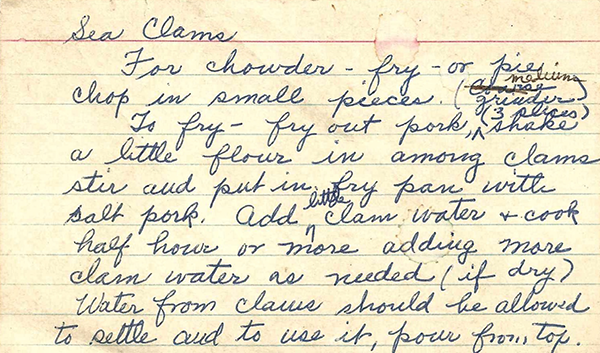 Sea Clams
For chowder - fry - or pie
chop in small pieces. (coarse medium grinder)
To fry - fry out pork, (3 slices) shake
a little flour in among clams
stir and put in fry pan with
salt pork. Add little clam water & cook
half hour or more adding more
clam water as needed (if dry)
Water from clams should be allowed
to settle and to use it, pour from top.